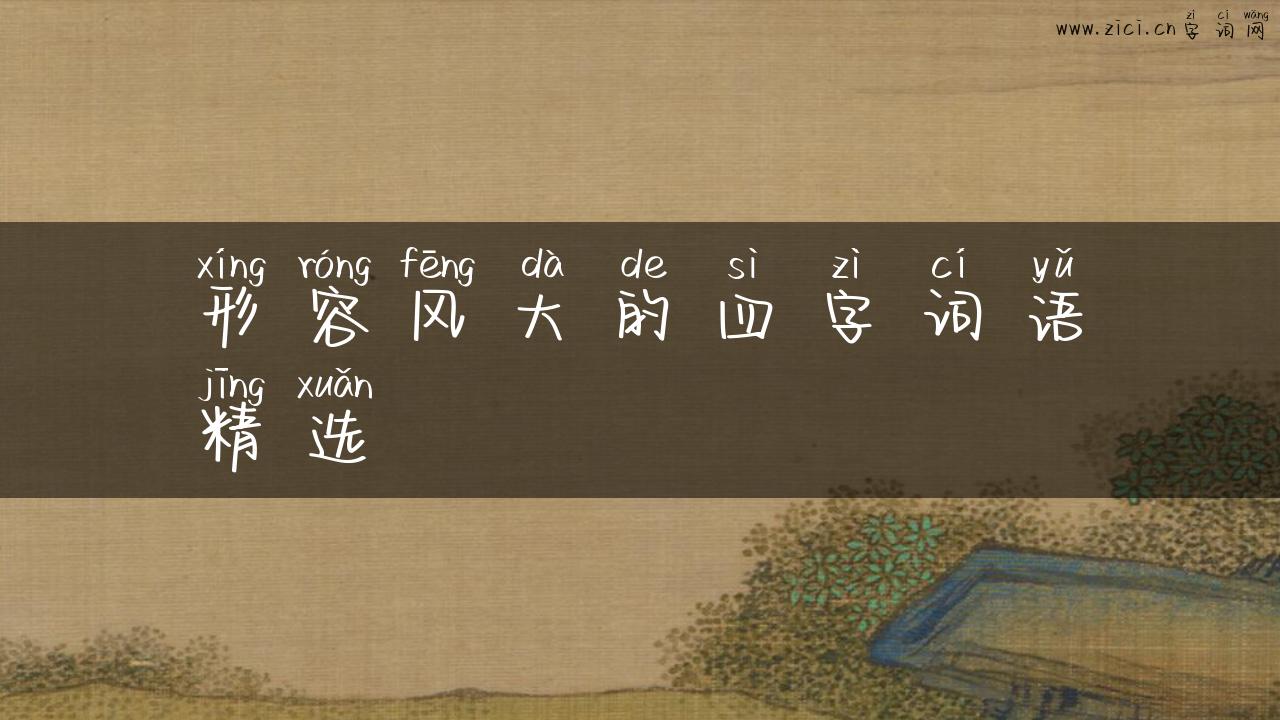 zì cí wǎng
www.zici.cn 字词网
xíng róng fēng dà de sì zì cí yǔ
形容风大的四字词语
jīng xuǎn
精选